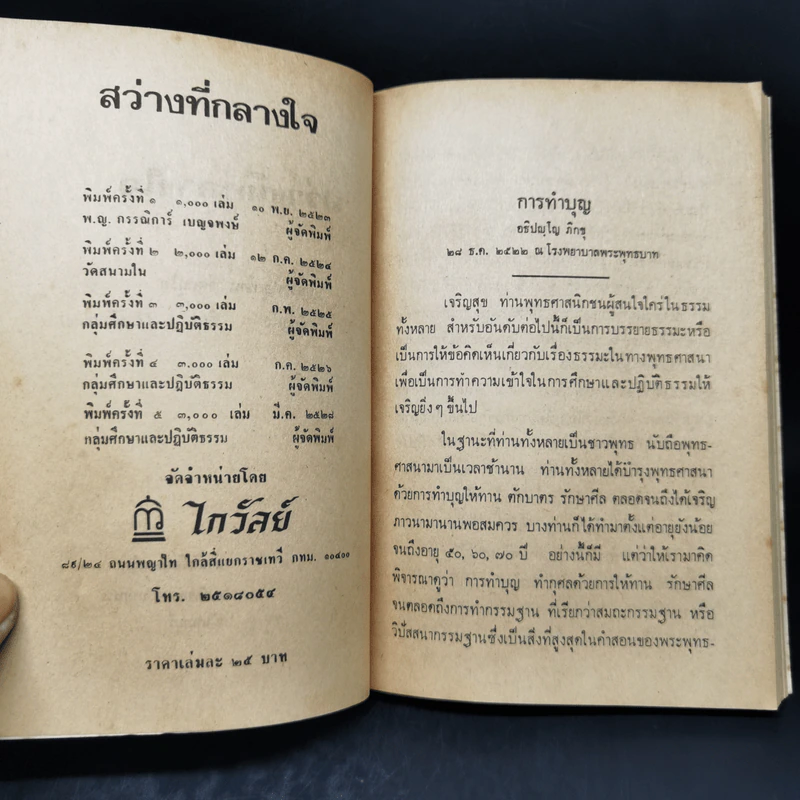 สว่างที่กลางใจ
พิมพ์ครั้งที่ ๑ ๑,๐๐๐ เล่ม ๑๐ พ.ย. ๒๕๒๓
พ.ญ. กรรณิการ์ เบญจพงษ์ ผู้จัดพิมพ์
พิมพ์ครั้งที่ ๒ ๒,๐๐๐ เล่ม ๑๒ ก.ค. ๒๕๒๔
วัดสนามใน ผู้จัดพิมพ์
พิมพ์ครั้งที่ ๓ ๓,๐๐๐ เล่ม ก.พ. ๒๕๒๕
กลุ่มศึกษาและปฏิบัติธรรม ผู้จัดพิมพ์
พิมพ์ครั้งที่ ๔ ๓.๐๐๐ เล่ม ก.ค. ๒๕๒๖
กลุ่มศึกษาและปฏิบัติธรรม ผู้จัดพิมพ์
พิมพ์ครั้งที่ ๕ ๓,๐๐๐ เล่ม มี.ค. ๒๕๒๘
กลุ่มศึกษาและปฏิบัติธรรม ผู้จัดพิมพ์
จัดจำหน่ายโดย
ไกวัลย์
๘๙/๒๔ ถนนพญาไท ใกล้สี่แยกราชเทวี กทม. ๑๐๔๐๐
โทร. ๒๕๑๘๐๕๔
ราคาเล่มละ ๒๕ บาท
การทำบุญ
อธิปญฺโญ ภิกขุ
๒๘ ธ.ค. ๒๕๒๒ ณ โรงพยาบาลพระพุทธบาท
เจริญสุข ท่านพุทธศาสนิกชนผู้สนใจใคร่ในธรรม
ทั้งหลาย สำหรับอันดับต่อไปนี้ก็เป็นการบรรยายธรรมะหรือ
เป็นการให้ข้อคิดเห็นเกี่ยวกับเรื่องธรรมะในทางพุทธศาสนา
เพื่อเป็นการทำความเข้าใจในการศึกษาและปฏิบัติธรรมให้
เจริญยิ่งๆ ขึ้นไป
ในฐานะที่ท่านทั้งหลายเป็นชาวพุทธ นับถือพุทธ-
ศาสนามาเป็นเวลาช้านาน ท่านทั้งหลายได้บำรุงพุทธศาสนา
ด้วยการทำบุญให้ทาน ตักบาตร รักษาศีล ตลอดจนถึงได้เจริญ
ภาวนามานานพอสมควร บางท่านก็ได้ทำมาตั้งแต่อายุยังน้อย
จนถึงอายุ ๕๐, ๖๐, ๗๐ ปี อย่างนี้ก็มี แต่ว่าให้เรามาคิด
พิจารณาดูว่า การทำบุญ ทำกุศลด้วยการให้ทาน รักษาศีล
จนตลอดถึงการทำกรรมฐาน ที่เรียกว่าสมถะกรรมฐาน หรือ
วิปัสสนากรรมฐานซึ่งเป็นสิ่งที่สูงสุดในคำสอนของพระพุทธ-